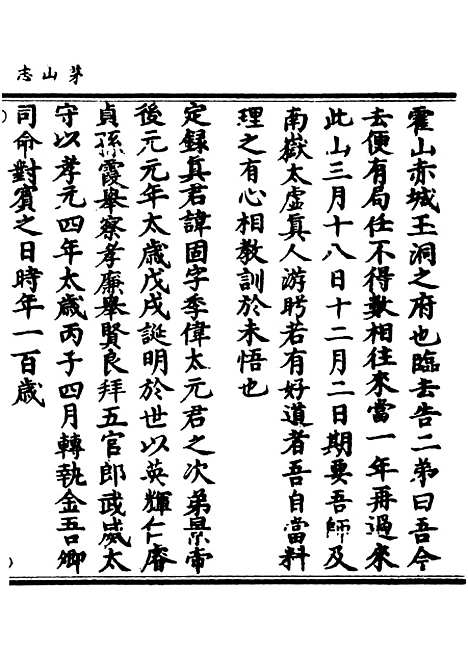 茅山志
霍山赤城玉洞之府也臨去告二弟曰吾今
去便有局任不得數相往來當一年再過來
此山三月十八日十二月二日期要吾師及
南嶽太虛真人游盻若有好道者吾自當料
理之有心相教訓於未悟也
定録真君諱固字季偉太元君之次弟景帝
後元元年太歲戊戌誕明於世以英輝仁睿
貞孫霞舉察孝廉舉賢良拜五官郎武威太
守以孝元四年太歲丙子四月轉執金吾卿
司命對賓之日時年一百歲